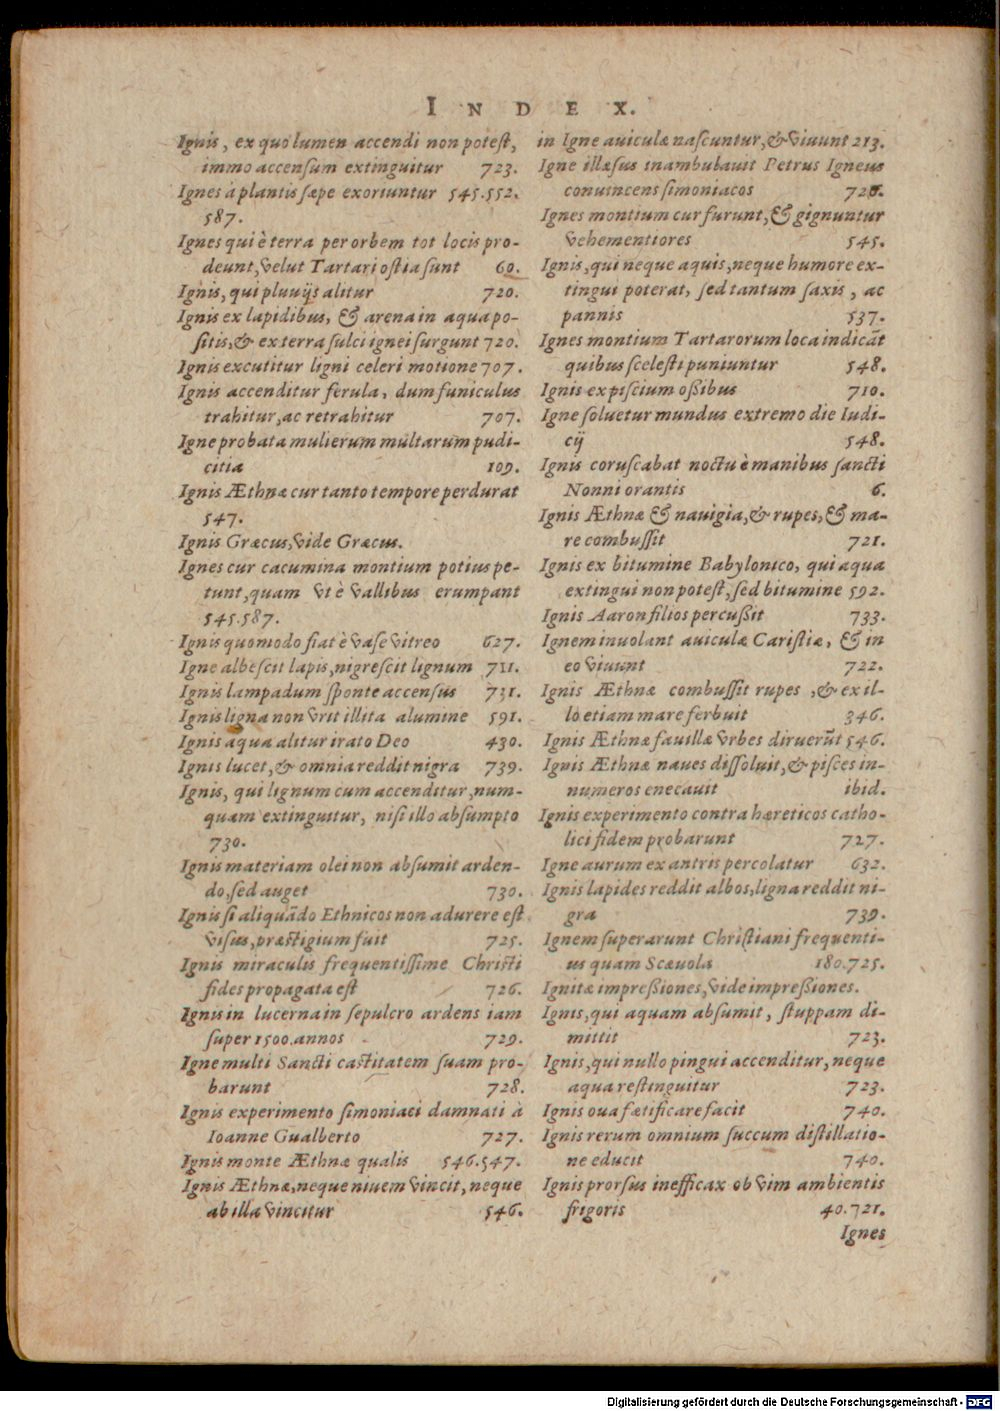 INDEX.
Ignis, ex quo lumen accendi non potest,
immo accensum extinguitur 723.
Ignes à plantis sæpe exoriuntur 545.552.
587.
Ignes qui è terra per orbem tot locis pro-
deunt, velut Tartari ostia sunt 60.
Ignis, qui pluuijs alitur 720.
Ignis ex lapidibus, & arena in aqua po-
sitis, & ex terra sulci ignei surgunt 720.
Ignis excutitur ligni celeri motione 707.
Ignis accenditur ferula, dum funiculus
trahitur, ac retrahitur 707.
Igne probata mulierum multarum pudi-
citia 109.
Ignis Æthnæ cur tanto tempore perdurat
547.
Ignis Græcus, vide Græcus.
Ignes cur cacumina montium potius pe-
tunt, quam vt è vallibus erumpant
545.587.
Ignis quomodo fiat è vase vitreo 627.
Igne albescit lapis, nigrescit lignum 711.
Ignis lampadum sponte accensus 731.
Ignis ligna non vrit illita alumine 591.
Ignis aqua alitur irato Deo 430.
Ignis lucet, & omnia reddit nigra 739.
Ignis, qui lignum cum accenditur, num-
quam extinguitur, nisi illo absumpto
730.
Ignis materiam olei non absumit arden-
do, sed auget 730.
Ignis si aliquãdo Ethnicos non adurere est
visus, præstigium fuit 725.
Ignis miraculis frequentissime Christi
fides propagata est 726.
Ignis in lucerna in sepulcro ardens iam
super 1500. annos 729.
Igne multi Sancti castitatem suam pro-
barunt 728.
Ignis experimento simoniaci damnati à
Ioanne Gualberto 727.
Ignis monte Æthnæ qualis 546.547.
Ignis Æthnæ, neque niuem vincit, neque
ab illa vincitur 546.
in Igne auiculæ nascuntur, & viuunt 213.
Igne illæsus inambulauit Petrus Igneus
conuincens simoniacos 726.
Ignes montium cur furunt, & gignuntur
vehementiores 545.
Ignis, qui neque aquis, neque humore ex-
tingui poterat, sed tantum saxis, ac
pannis 537.
Ignes montium Tartarorum loca indicãt
quibus scelesti puniuntur 548.
Ignis ex piscium oßibus 710.
Igne soluetur mundus extremo die Iudi-
cij 548.
Ignis coruscabat noctu è manibus sancti
Nonni orantis 6.
Ignis Æthnæ & nauigia, & rupes, & ma-
re combussit 721.
Ignis ex bitumine Babylonico, qui aqua
extingui non potest, sed bitumine 592.
Ignis Aaron filios percußit 733.
Ignem inuolant auiculæ Caristiæ, & in
eo viuunt 722.
Ignis Æthnæ combussit rupes, & ex il-
lo etiam mare ferbuit 346.
Ignis Æthnæ fauillæ vrbes diruerũt 546.
Ignis Æthnæ naues dissoluit, & pisces in-
numeros enecauit ibid.
Ignis experimento contra hæreticos catho-
lici fidem probarunt 727.
Igne aurum ex antris percolatur 632.
Ignis lapides reddit albos, ligna reddit ni-
gra 739.
Ignem superarunt Christiani frequenti-
us quam Scæuola 180.725.
Ignitæ impreßiones, vide impreßiones.
Ignis, qui aquam absumit, stuppam di-
mittit 723.
Ignis, qui nullo pingui accenditur, neque
aqua restinguitur 723.
Ignis oua fætificare facit 740.
Ignis rerum omnium succum distillatio-
ne educit 740.
Ignis prorsus inefficax ob vim ambientis
frigoris 40.721.
Ignes
Digitalisierung gefördert durch die Deutsche Forschungsgemeinschaft - DFG